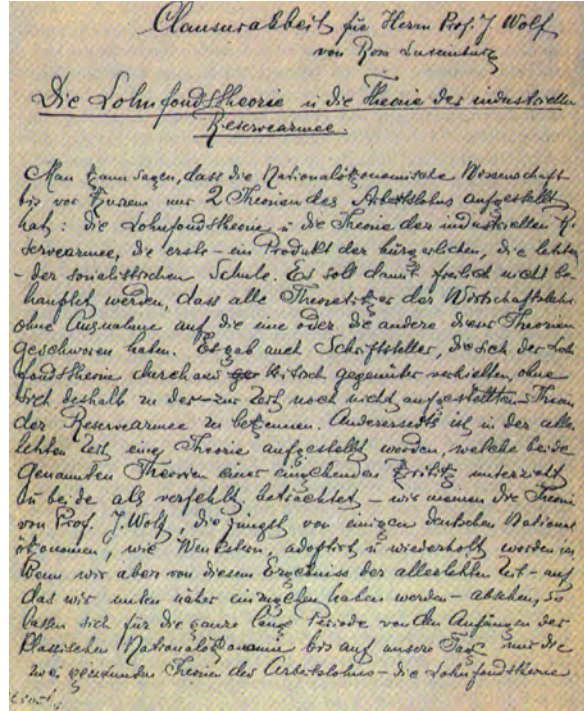 Clausurarbeit für Herrn Prof. J Wolf
von Rosa Luxemburg
Die Lohnfondstheorie u die Theorie der industriellen
Reservearmee.
Man kann sagen, dass die Nationalökonomische Wissenschaft
bis vor Kurzem nur 2 Theorien des Arbeitslohns aufgestellt
hat: die Lohnfondstheorie u die Theorie der industriellen Re-
servearmee, die erste – ein Produkt der bürgerlichen, die letzte
– der sozialistischen Schule. Es soll damit freilich nicht be-
hauptet werden, dass alle Theoretiker der Wirtschaftslehre
ohne Ausnahme auf die eine oder die andere dieser Theorien
geschworen haben. Es gab auch Schriftsteller, die sich der Lohn
fondstheorie durchaus kritisch gegenüber verhielten, ohne
sich deshalb zu der – zur Zeit noch nicht aufgestellten – Theorie
der Reservearmee zu bekennen. Andererseits ist in der aller
letzten Zeit eine Theorie aufgestellt worden, welche beide
genannten Theorien einer eingehenden Kritik unterzieht
u beide als verfehlt betrachtet – wir meinen die Theorie
von Prof. J. Wolf, die jüngst von einigen deutschen National
ökonomen, wie Wenckstern, adoptirt u wiederholt worden ist
Wenn wir aber von diesem Ergebniss der allerletzten Zeit – auf
das wir unten näher einzugehen haben werden – absehen, so
lassen sich für die ganze lange Periode von den Anfängen der
klassischen Nationalökonomie bis auf unsere Tage nur die
zwei Theorien des Arbeitslohns – die Lohnfondstheorie